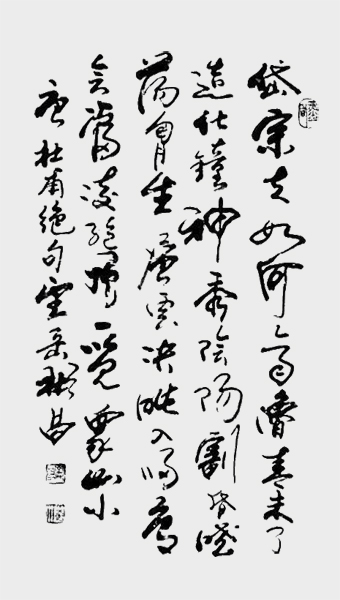 岱宗夫如何齊魯青未了
造化鐘神秀陰陽割昏曉
蕩胸生層雲決眥入歸鳥
會當凌絕頂一覽眾山小
唐杜甫絕句